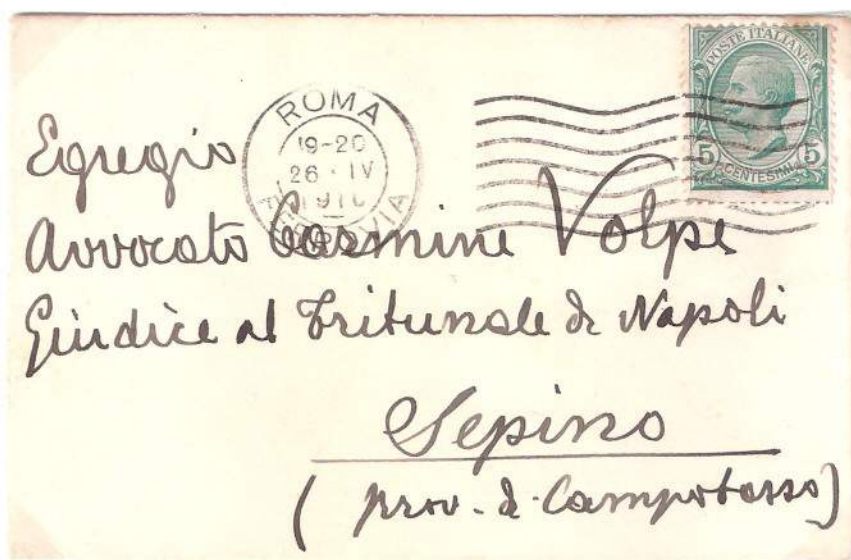 POSTE ITALIANE
5 CENTESIMI 5
ROMA
19-20
26 · IV
FERROVIA
Egregio
Avvocato Carmine Volpe
Giudice al Tribunale di Napoli
Sepino
(prov. di Campobasso)